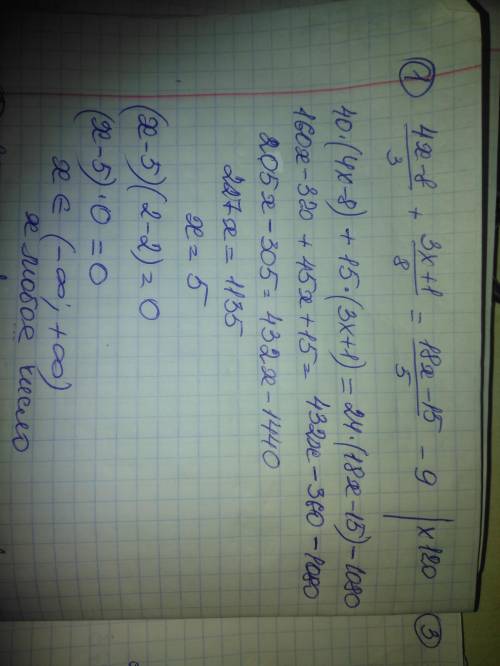 ① (4x-8)/3 + (3x+1)/8 = (18x-15)/5 - 9 | x120
40·(4x-8) + 15·(3x+1) = 24·(18x-15) - 1080
160x - 320 + 45x + 15 = 432x - 360 - 1080
205x - 305 = 432x - 1440
227x = 1135
x = 5
(x-5)(2-2) = 0
(x-5)·0 = 0
x ∈ (-∞; +∞)
x любое число
③